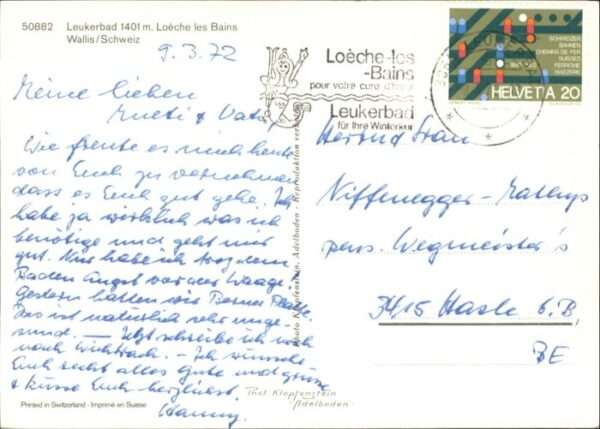 50882 Leukerbad 1401 m. Loèche les Bains
Wallis/Schweiz
9.3.72
Meine lieben
Mueti & Vati,
Wie freute es mich heute
von Euch zu vernehmen
dass es Euch gut gehe. Ich
habe ja wirklich was ich
benötige und geht mir
gut. Nur habe ich trotz dem
Baden Angst vor der Waage.
Gestern hatten wir Berner Platte
das ist natürlich sehr unge-
sund. — Jetzt schreibe ich noch
nach Wichtrach. — Ich wünsche
Euch recht alles gute und grüsse
& küsse Euch herzlichst.
Hanny.
Printed in Switzerland - Imprimé en Suisse
Photo Klopfenstein, Adelboden - Reproduktion verboten
Phot Klopfenstein
Adelboden
Loèche-les
-Bains
pour votre cure d'hiver
Leukerbad
für Ihre Winterkur
SCHWEIZER
BAHNEN
CHEMINS DE FER
SUISSES
FERROVIE
SVIZZERE
HELVETIA 20
Herr und Frau
Niffenegger-
pens. Wegmeister's
3415 Hasle b. B.
BE